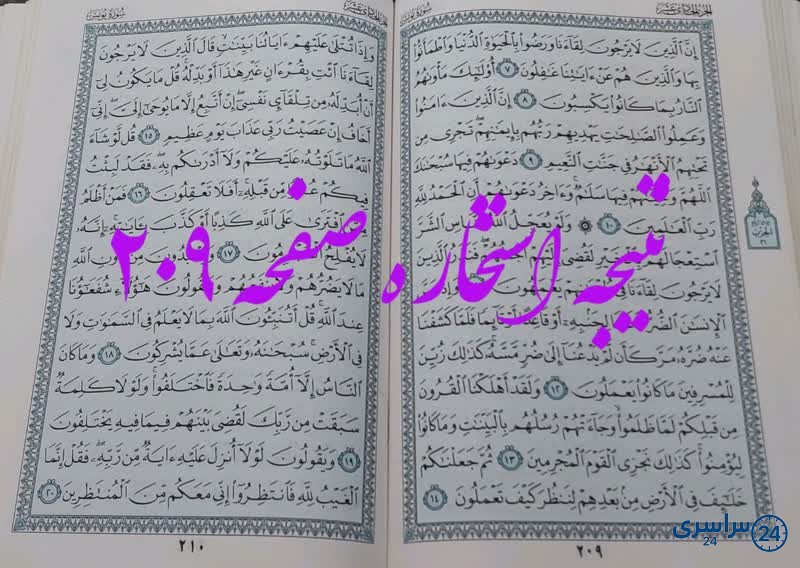 سُورَةُ يُونُسَ
إِنَّ ٱلَّذِينَ لَا يَرْجُونَ لِقَآءَنَا وَرَضُوا۟ بِٱلْحَيَوٰةِ ٱلدُّنْيَا وَٱطْمَأَنُّوا۟
بِهَا وَٱلَّذِينَ هُمْ عَنْ ءَايَٰتِنَا غَٰفِلُونَ ٧ أُو۟لَٰٓئِكَ مَأْوَىٰهُمُ
ٱلنَّارُ بِمَا كَانُوا۟ يَكْسِبُونَ ٨ إِنَّ ٱلَّذِينَ ءَامَنُوا۟
وَعَمِلُوا۟ ٱلصَّٰلِحَٰتِ يَهْدِيهِمْ رَبُّهُم بِإِيمَٰنِهِمْ تَجْرِى مِن
تَحْتِهِمُ ٱلْأَنْهَٰرُ فِى جَنَّٰتِ ٱلنَّعِيمِ ٩ دَعْوَىٰهُمْ فِيهَا سُبْحَٰنَكَ
ٱللَّهُمَّ وَتَحِيَّتُهُمْ فِيهَا سَلَٰمٌ وَءَاخِرُ دَعْوَىٰهُمْ أَنِ ٱلْحَمْدُ لِلَّهِ
رَبِّ ٱلْعَٰلَمِينَ ١٠ ۞ وَلَوْ يُعَجِّلُ ٱللَّهُ لِلنَّاسِ ٱلشَّرَّ
ٱسْتِعْجَالَهُم بِٱلْخَيْرِ لَقُضِىَ إِلَيْهِمْ أَجَلُهُمْ فَنَذَرُ ٱلَّذِينَ
لَا يَرْجُونَ لِقَآءَنَا فِى يَعْمَهُونَ
ٱلْإِنسَٰنَ ٱلضُّرُّ لِجَنۢبِهِۦٓ أَوْ قَاعِدًا أَوْ قَآئِمًا فَلَمَّا كَشَفْنَا
عَنْهُ ضُرَّهُۥ مَرَّ كَأَن لَّمْ يَدْعُنَآ إِلَىٰ ضُرٍّ مَّسَّهُۥ كَذَٰلِكَ زُيِّنَ
لِلْمُسْرِفِينَ مَا كَانُوا۟ يَعْمَلُونَ ١٢ وَلَقَدْ أَهْلَكْنَا ٱلْقُرُونَ
مِن قَبْلِكُمْ لَمَّا ظَلَمُوا۟ وَجَآءَتْهُمْ رُسُلُهُم بِٱلْبَيِّنَٰتِ وَمَا كَانُوا۟
لِيُؤْمِنُوا۟ كَذَٰلِكَ نَجْزِى ٱلْقَوْمَ ٱلْمُجْرِمِينَ ١٣ ثُمَّ جَعَلْنَٰكُمْ
خَلَٰٓئِفَ فِى ٱلْأَرْضِ مِنۢ بَعْدِهِمْ لِنَنظُرَ كَيْفَ تَعْمَلُونَ ١٤
٢٠٩
سُورَةُ يُونُسَ
وَإِذَا تُتْلَىٰ عَلَيْهِمْ ءَايَاتُنَا بَيِّنَٰتٍ قَالَ ٱلَّذِينَ لَا يَرْجُونَ
لِقَآءَنَا ٱئْتِ بِقُرْءَانٍ غَيْرِ هَٰذَآ أَوْ بَدِّلْهُ قُلْ مَا يَكُونُ لِىٓ
أَنْ أُبَدِّلَهُۥ مِن تِلْقَآئِ نَفْسِىٓ إِنْ أَتَّبِعُ إِلَّا مَا يُوحَىٰٓ إِلَىَّ إِنِّىٓ
أَخَافُ إِنْ عَصَيْتُ رَبِّى عَذَابَ يَوْمٍ عَظِيمٍ ١٥ قُل لَّوْ شَآءَ
ٱللَّهُ مَا تَلَوْتُهُۥ عَلَيْكُمْ وَلَآ أَدْرَىٰكُم بِهِۦ فَقَدْ لَبِثْتُ
فِيكُمْ عُمُرًا مِّن قَبْلِهِۦٓ أَفَلَا تَعْقِلُونَ ١٦ فَمَنْ أَظْلَمُ
مِمَّنِ ٱفْتَرَىٰ عَلَى ٱللَّهِ كَذِبًا أَوْ كَذَّبَ بِـَٔايَٰتِهِۦٓ إِنَّهُۥ
لَا يُفْلِحُ ١٧ وَيَعْبُدُونَ مِن دُونِ ٱللَّهِ
مَا لَا يَضُرُّهُمْ وَلَا يَنفَعُهُمْ وَيَقُولُونَ هَٰٓؤُلَآءِ شُفَعَٰٓؤُنَا
عِندَ ٱللَّهِ قُلْ أَتُنَبِّـُٔونَ ٱللَّهَ بِمَا لَا يَعْلَمُ فِى ٱلسَّمَٰوَٰتِ وَلَا
فِى ٱلْأَرْضِ سُبْحَٰنَهُۥ وَتَعَٰلَىٰ عَمَّا يُشْرِكُونَ ١٨ وَمَا كَانَ
ٱلنَّاسُ إِلَّآ أُمَّةً وَٰحِدَةً فَٱخْتَلَفُوا۟ وَلَوْلَا كَلِمَةٌ
سَبَقَتْ مِن رَّبِّكَ لَقُضِىَ بَيْنَهُمْ فِيمَا فِيهِ يَخْتَلِفُونَ
١٩ وَيَقُولُونَ لَوْلَآ أُنزِلَ عَلَيْهِ ءَايَةٌ مِّن رَّبِّهِۦ فَقُلْ إِنَّمَا
ٱلْغَيْبُ لِلَّهِ فَٱنتَظِرُوٓا۟ إِنِّى مَعَكُم مِّنَ ٱلْمُنتَظِرِينَ ٢٠
٢١٠
نتیجه استخاره صفحه ۲۰۹
سراسری 24
24